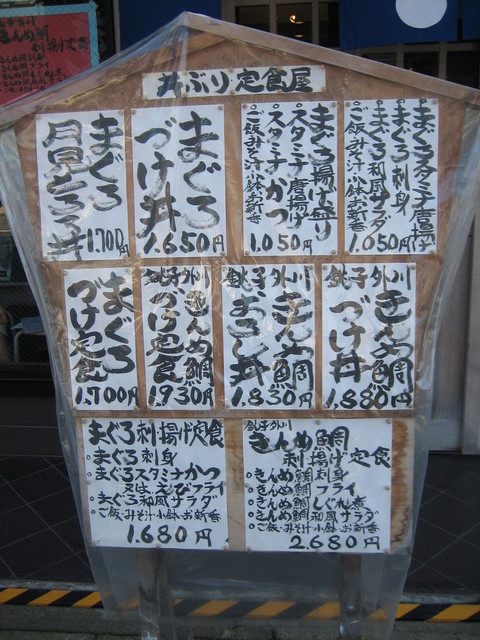 丼ぶり・定食屋
まぐろスタミナ唐揚げ
まぐろ刺身
まぐろ和風サラダ
ご飯・みそ汁・小鉢・お新香
1.050円
まぐろ揚げ盛り
スタミナ唐揚げ
スタミナかつ
ご飯・みそ汁・小鉢・お新香
1.050円
まぐろ
づけ丼
1.650円
まぐろ
月見とろろ丼
1.700円
銚子外川
きんめ鯛
づけ丼
1.880円
銚子外川
きんめ鯛
おこし丼
1.830円
銚子外川
きんめ鯛
づけ定食
1.930円
まぐろ
づけ定食
1.700円
まぐろ刺揚げ定食
・まぐろ刺身
・まぐろスタミナかつ
又はえびフライ
・まぐろ和風サラダ
・ご飯・みそ汁・小鉢・お新香
1.680円
銚子外川
きんめ鯛
刺揚げ定食
・きんめ鯛刺身
・きんめ鯛フライ
・きんめ鯛しぐれ煮
・きんめ鯛和風サラダ
・ご飯・みそ汁・小鉢・お新香
2.680円
きんめ鯛
刺揚げ定食